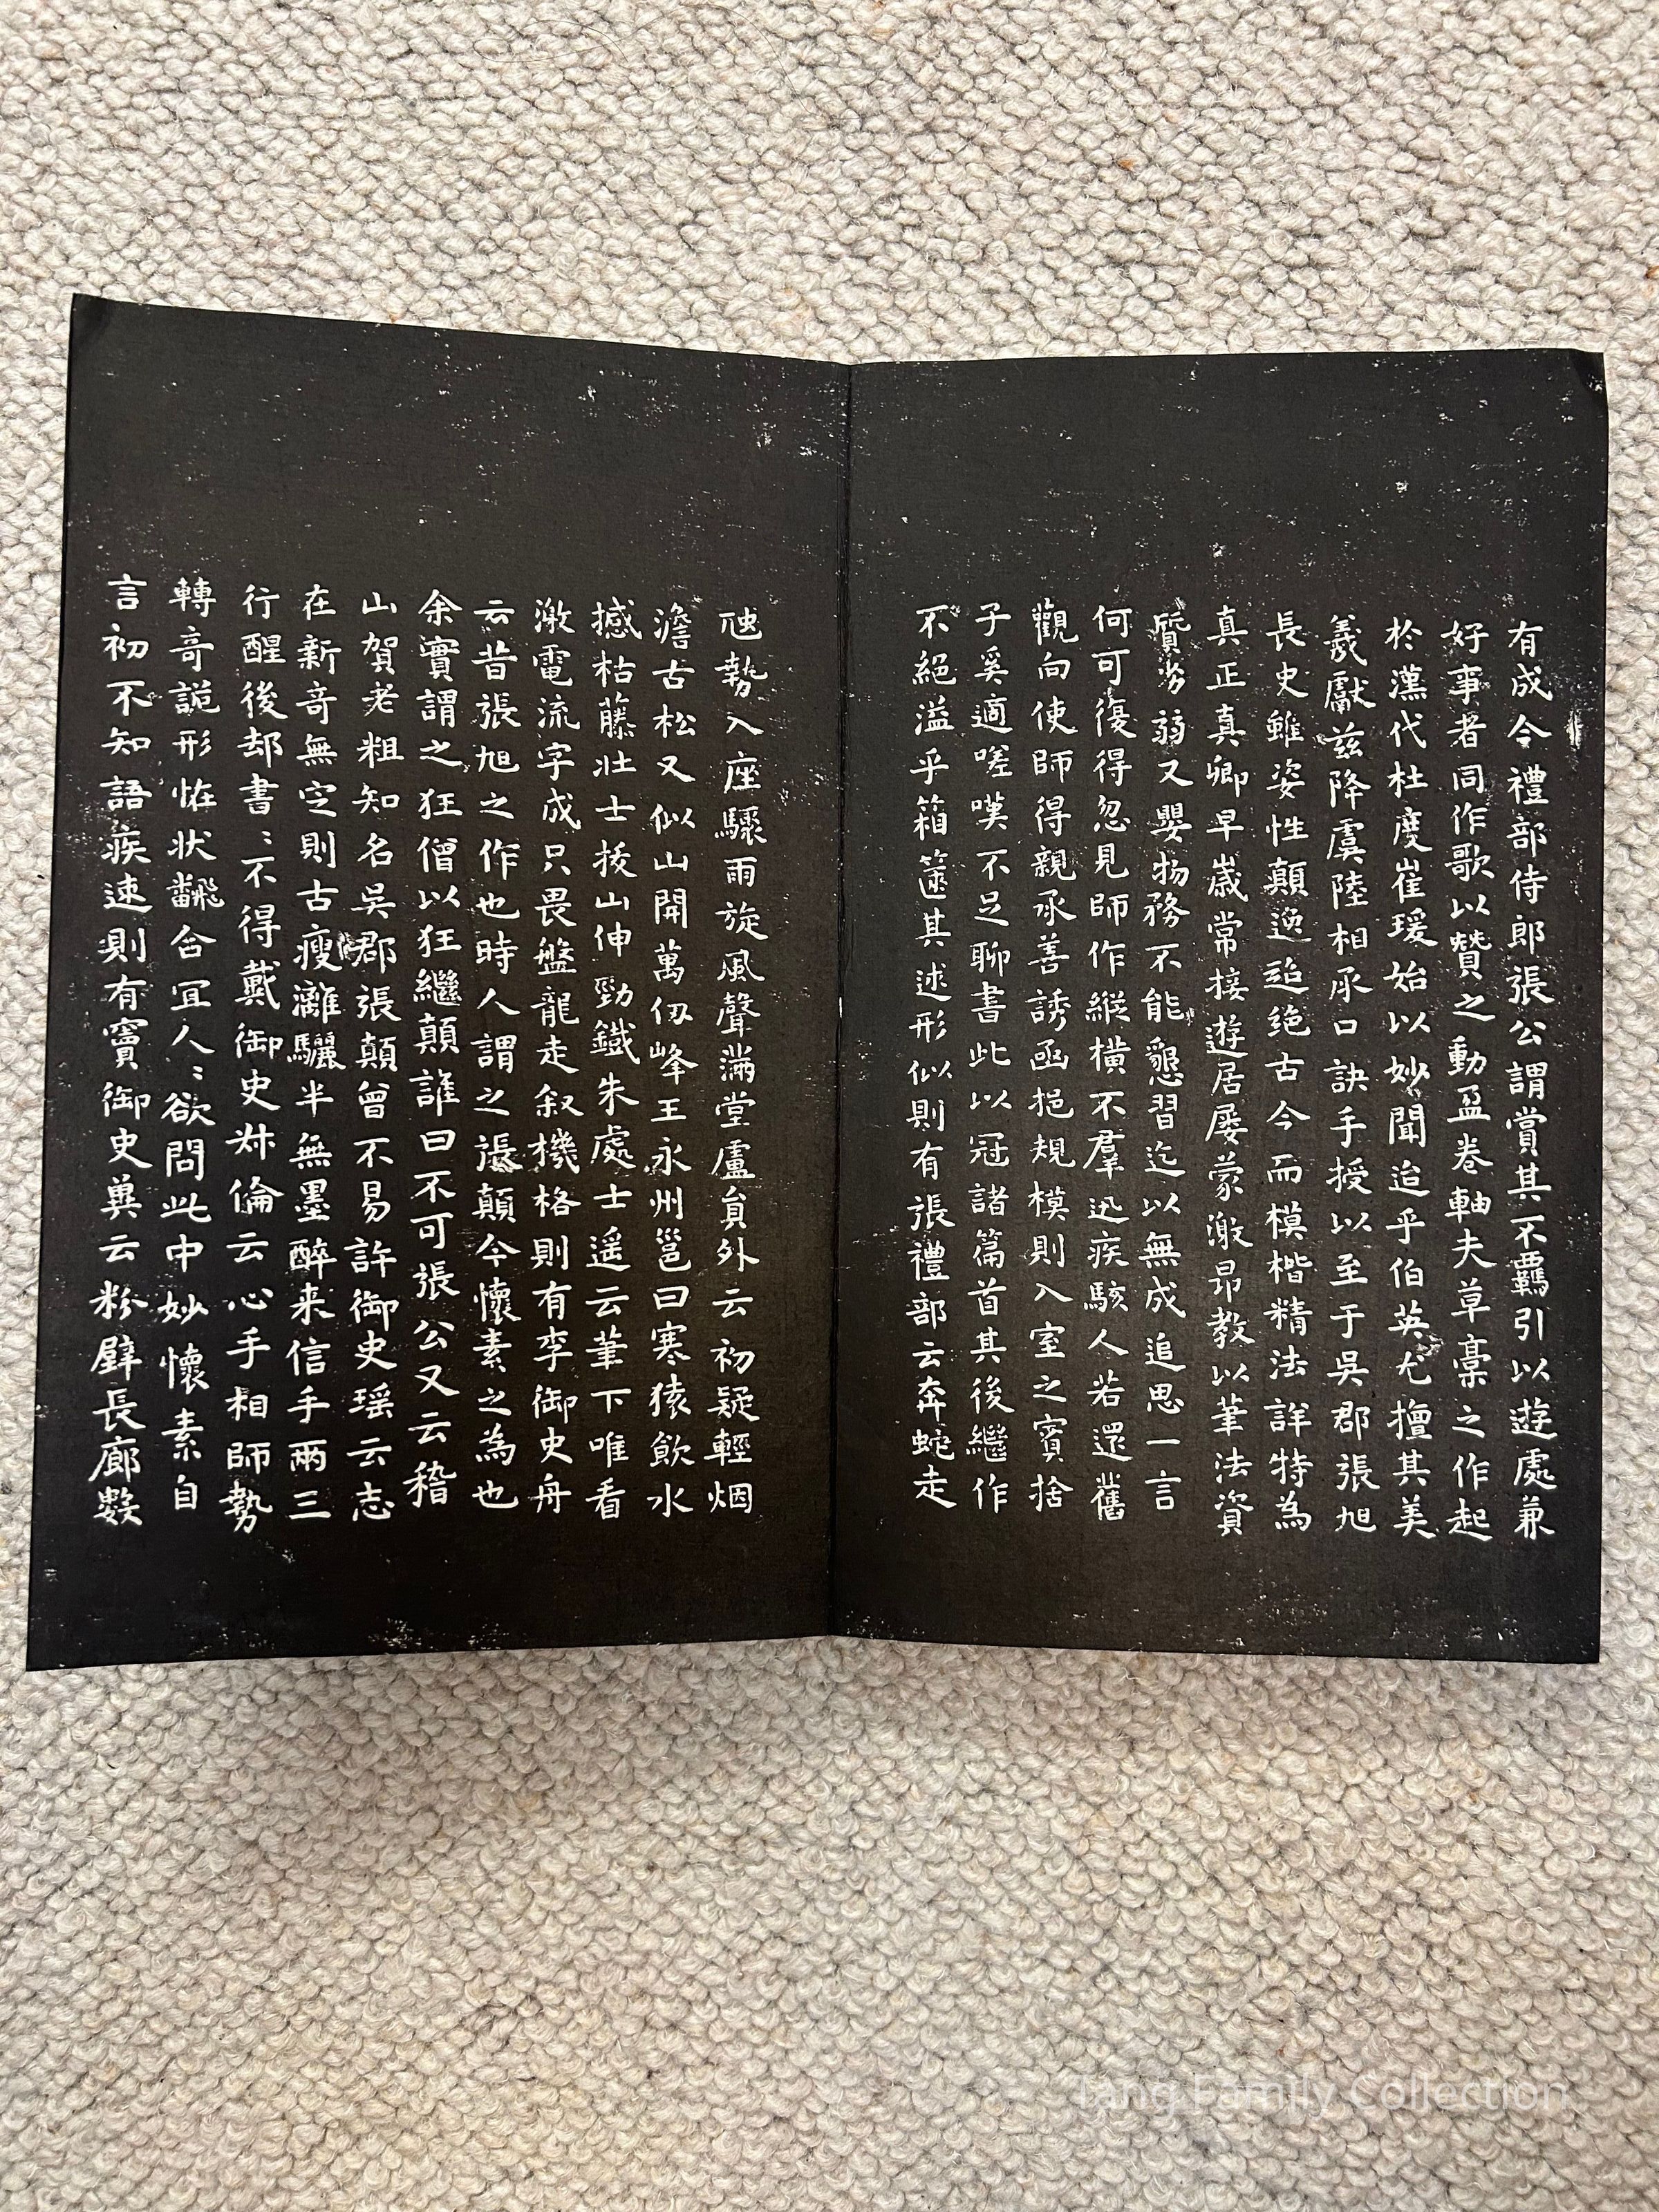 有成今禮部侍郎張公謂賞其不羈引以遊處兼
好事者同作歌以贊之動盈卷軸夫草藁之作起
於漢代杜度崔瑗始以妙聞迨乎伯英尤擅其美
羲獻茲降虞陸相承口訣手授以至于吳郡張旭
長史雖姿性顛逸超絕古今而模楷精法詳特為
真正真卿早歲常接遊居屢蒙激昂教以筆法資
質劣弱又嬰物務不能懇習迄以無成追思一言
何可復得忽見師作縱橫不羣迅疾駭人若還舊
觀向使師得親承善誘函挹規模則入室之賓捨
子奚適嗟嘆不足聊書此以冠諸篇首其後繼作
不絕溢乎箱篋其述形似則有張禮部云奔蛇走
虺勢入座驟雨旋風聲滿堂盧員外云初疑輕烟
澹古松又似山開萬仞峰王永州邕曰寒猿飲水
撼枯藤壯士拔山伸勁鐵朱處士遙云筆下唯看
激電流字成只畏盤龍走叙機格則有李御史舟
云昔張旭之作也時人謂之張顛今懷素之為也
余實謂之狂僧以狂繼顛誰曰不可張公又云稽
山賀老粗知名吳郡張顛曾不易許御史瑶云志
在新奇無定則古瘦灕驪半無墨醉来信手兩三
行醒後却書〻不得戴御史叔倫云心手相師勢
轉奇詭形恠狀翻合宜人〻欲問此中妙懷素自
言初不知語疾速則有竇御史兾云粉壁長廊數
Tang Family Collection